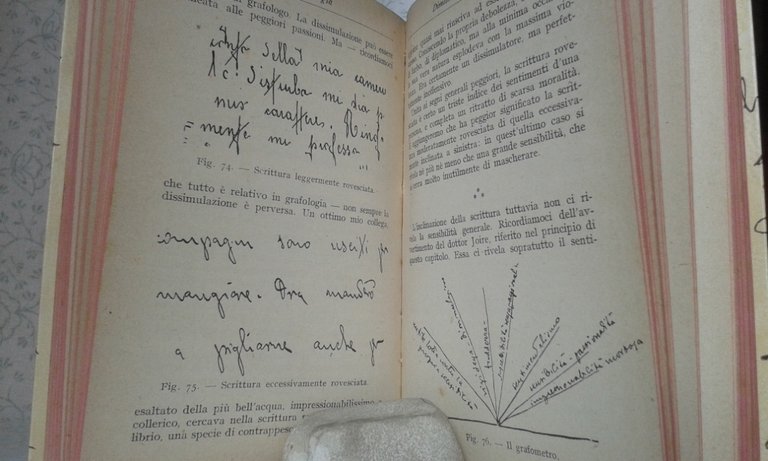 grafologo. La dissimulazione può essere
alle peggiori passioni. Ma — ricordiamoci
della mia camera
Disturba mi dia
carattere. Ring=
=mente mi professo
Fig. 74. — Scrittura leggermente rovesciata.
che tutto è relativo in grafologia — non sempre la
dissimulazione è perversa. Un ottimo mio collega,
compagni sono usciti per
mangiare. Ora manderò
a pigliarne anche per
Fig. 75. — Scrittura eccessivamente rovesciata.
esaltato della più bell'acqua, impressionabilissimo
collerico, cercava nella scrittura
librio, una specie di contrappeso
quasi mai riusciva ad
Conoscendo la propria debolezza,
furbo, di diplomatico, ma alla minima
sua vera natura esplodeva con la massima vio-
Era certamente un dissimulatore, ma perfet-
inoffensivo.
Unita ai segni generali peggiori, la scrittura rove-
è certo un triste indice dei sentimenti d'una
e completa un ritratto di scarsa moralità.
aggiungeremo che ha peggior significato la scrit-
moderatamente rovesciata di quella eccessiva-
mente inclinata a sinistra: in quest'ultimo caso si
nè più nè meno che una grande sensibilità, che
cerca molto inutilmente di mascherare.
L'inclinazione della scrittura tuttavia non ci ri-
vela la sensibilità generale. Ricordiamoci dell'av-
vertimento del dottor Joire, riferito nel principio di
questo capitolo. Essa ci rivela sopratutto il senti-
dissimulazione
freddezza
sensibilità
sentimentalismo
sensibilità - passionalità
impressionabilità morbosa
Fig. 76. — Il grafometro.